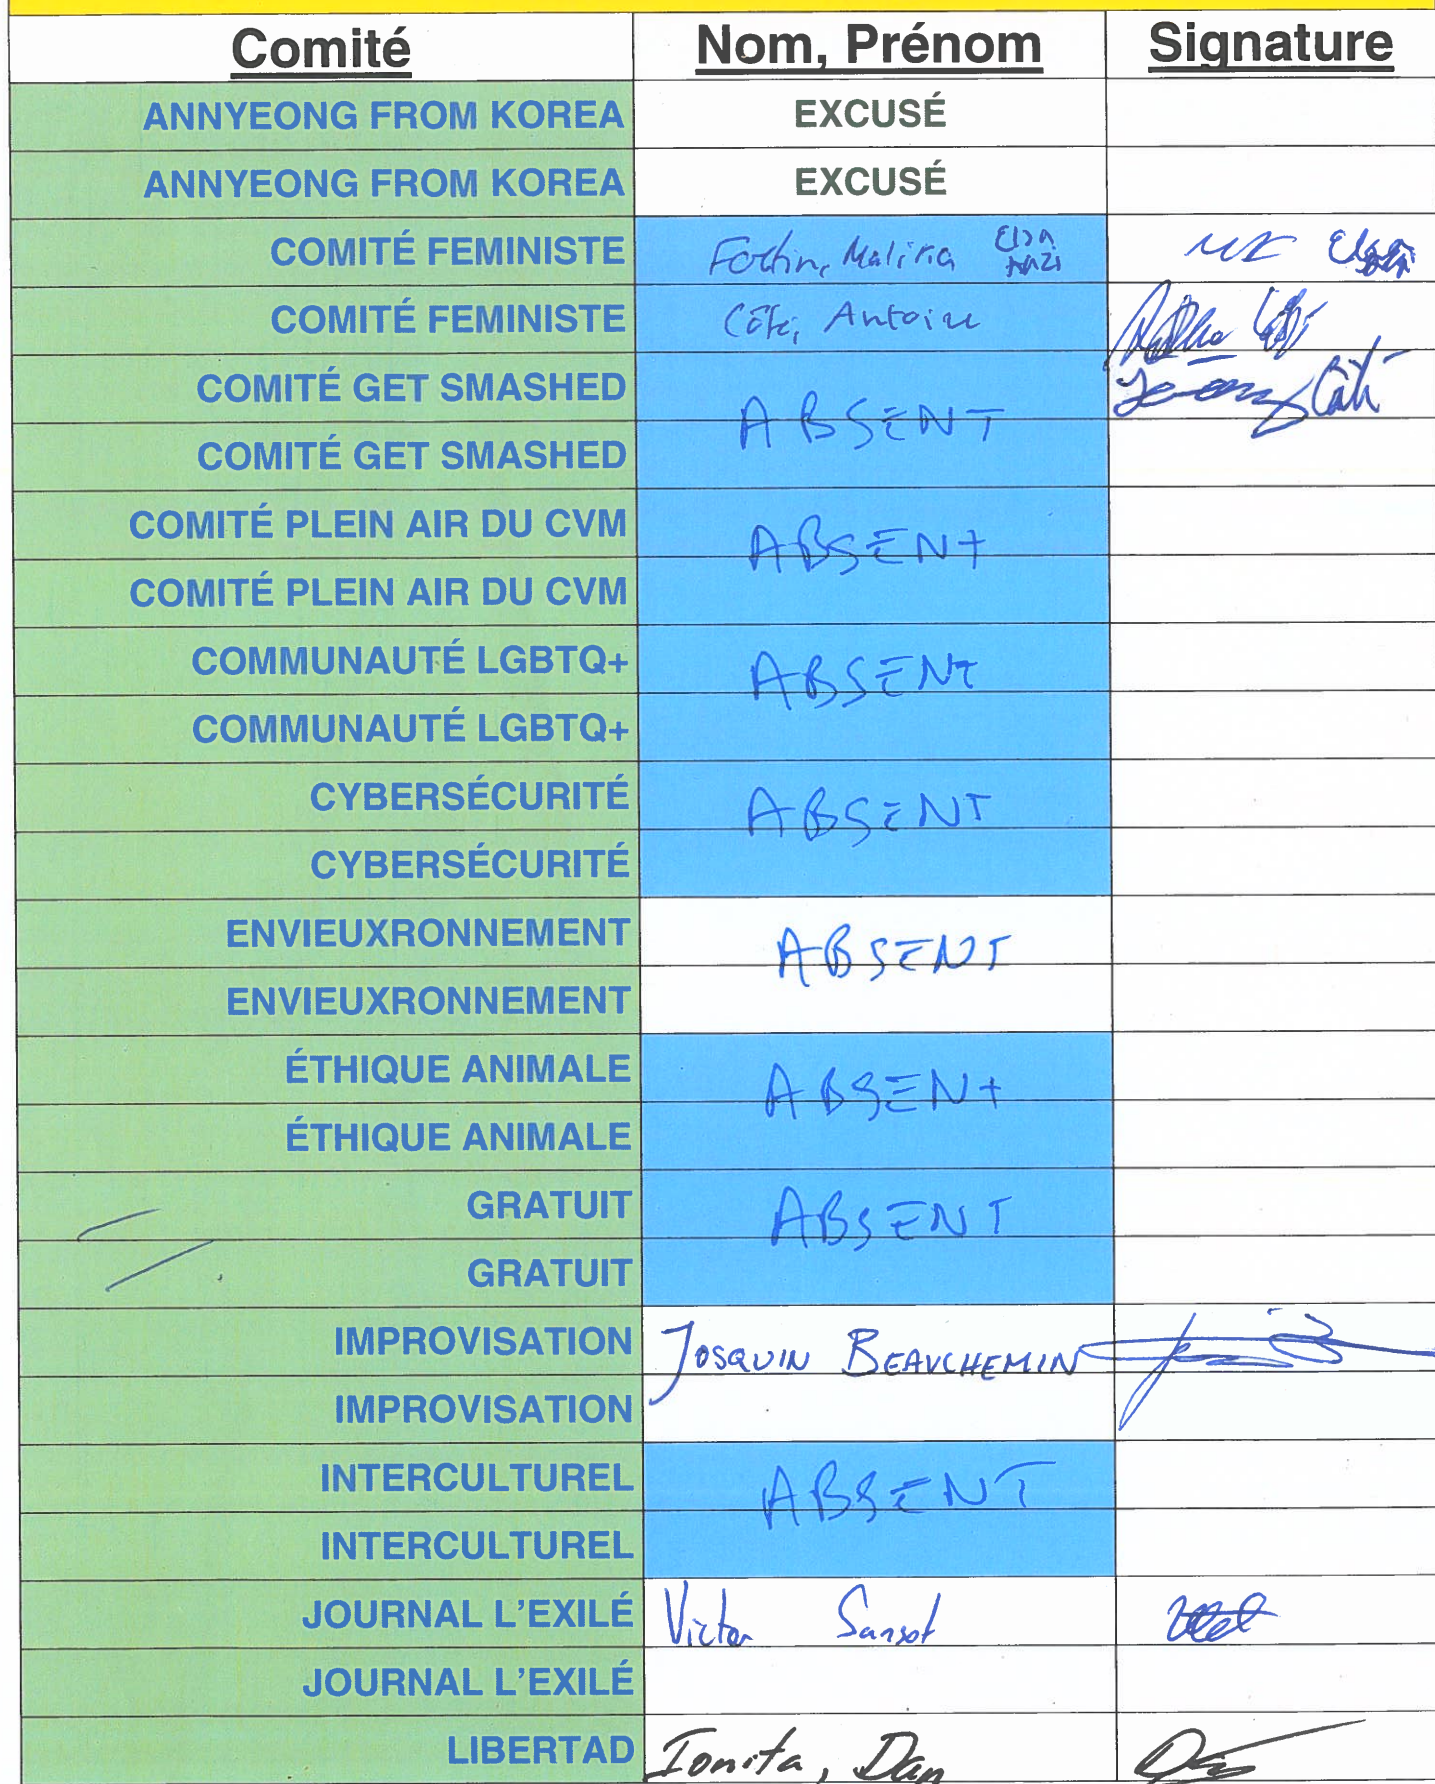 Comité Nom, Prénom Signature
ANNYEONG FROM KOREA EXCUSÉ
ANNYEONG FROM KOREA EXCUSÉ
COMITÉ FEMINISTE Malika
COMITÉ FEMINISTE Côté, Antoine
COMITÉ GET SMASHED ABSENT Côté
COMITÉ GET SMASHED
COMITÉ PLEIN AIR DU CVM ABSENT
COMITÉ PLEIN AIR DU CVM
COMMUNAUTÉ LGBTQ+ ABSENT
COMMUNAUTÉ LGBTQ+
CYBERSÉCURITÉ ABSENT
CYBERSÉCURITÉ
ENVIEUXRONNEMENT ABSENT
ENVIEUXRONNEMENT
ÉTHIQUE ANIMALE ABSENT
ÉTHIQUE ANIMALE
GRATUIT ABSENT
GRATUIT
IMPROVISATION JOSQUIN BEAUCHEMIN
IMPROVISATION
INTERCULTUREL ABSENT
INTERCULTUREL
JOURNAL L'EXILÉ Victor Sansot
JOURNAL L'EXILÉ
LIBERTAD Ionita, Dan